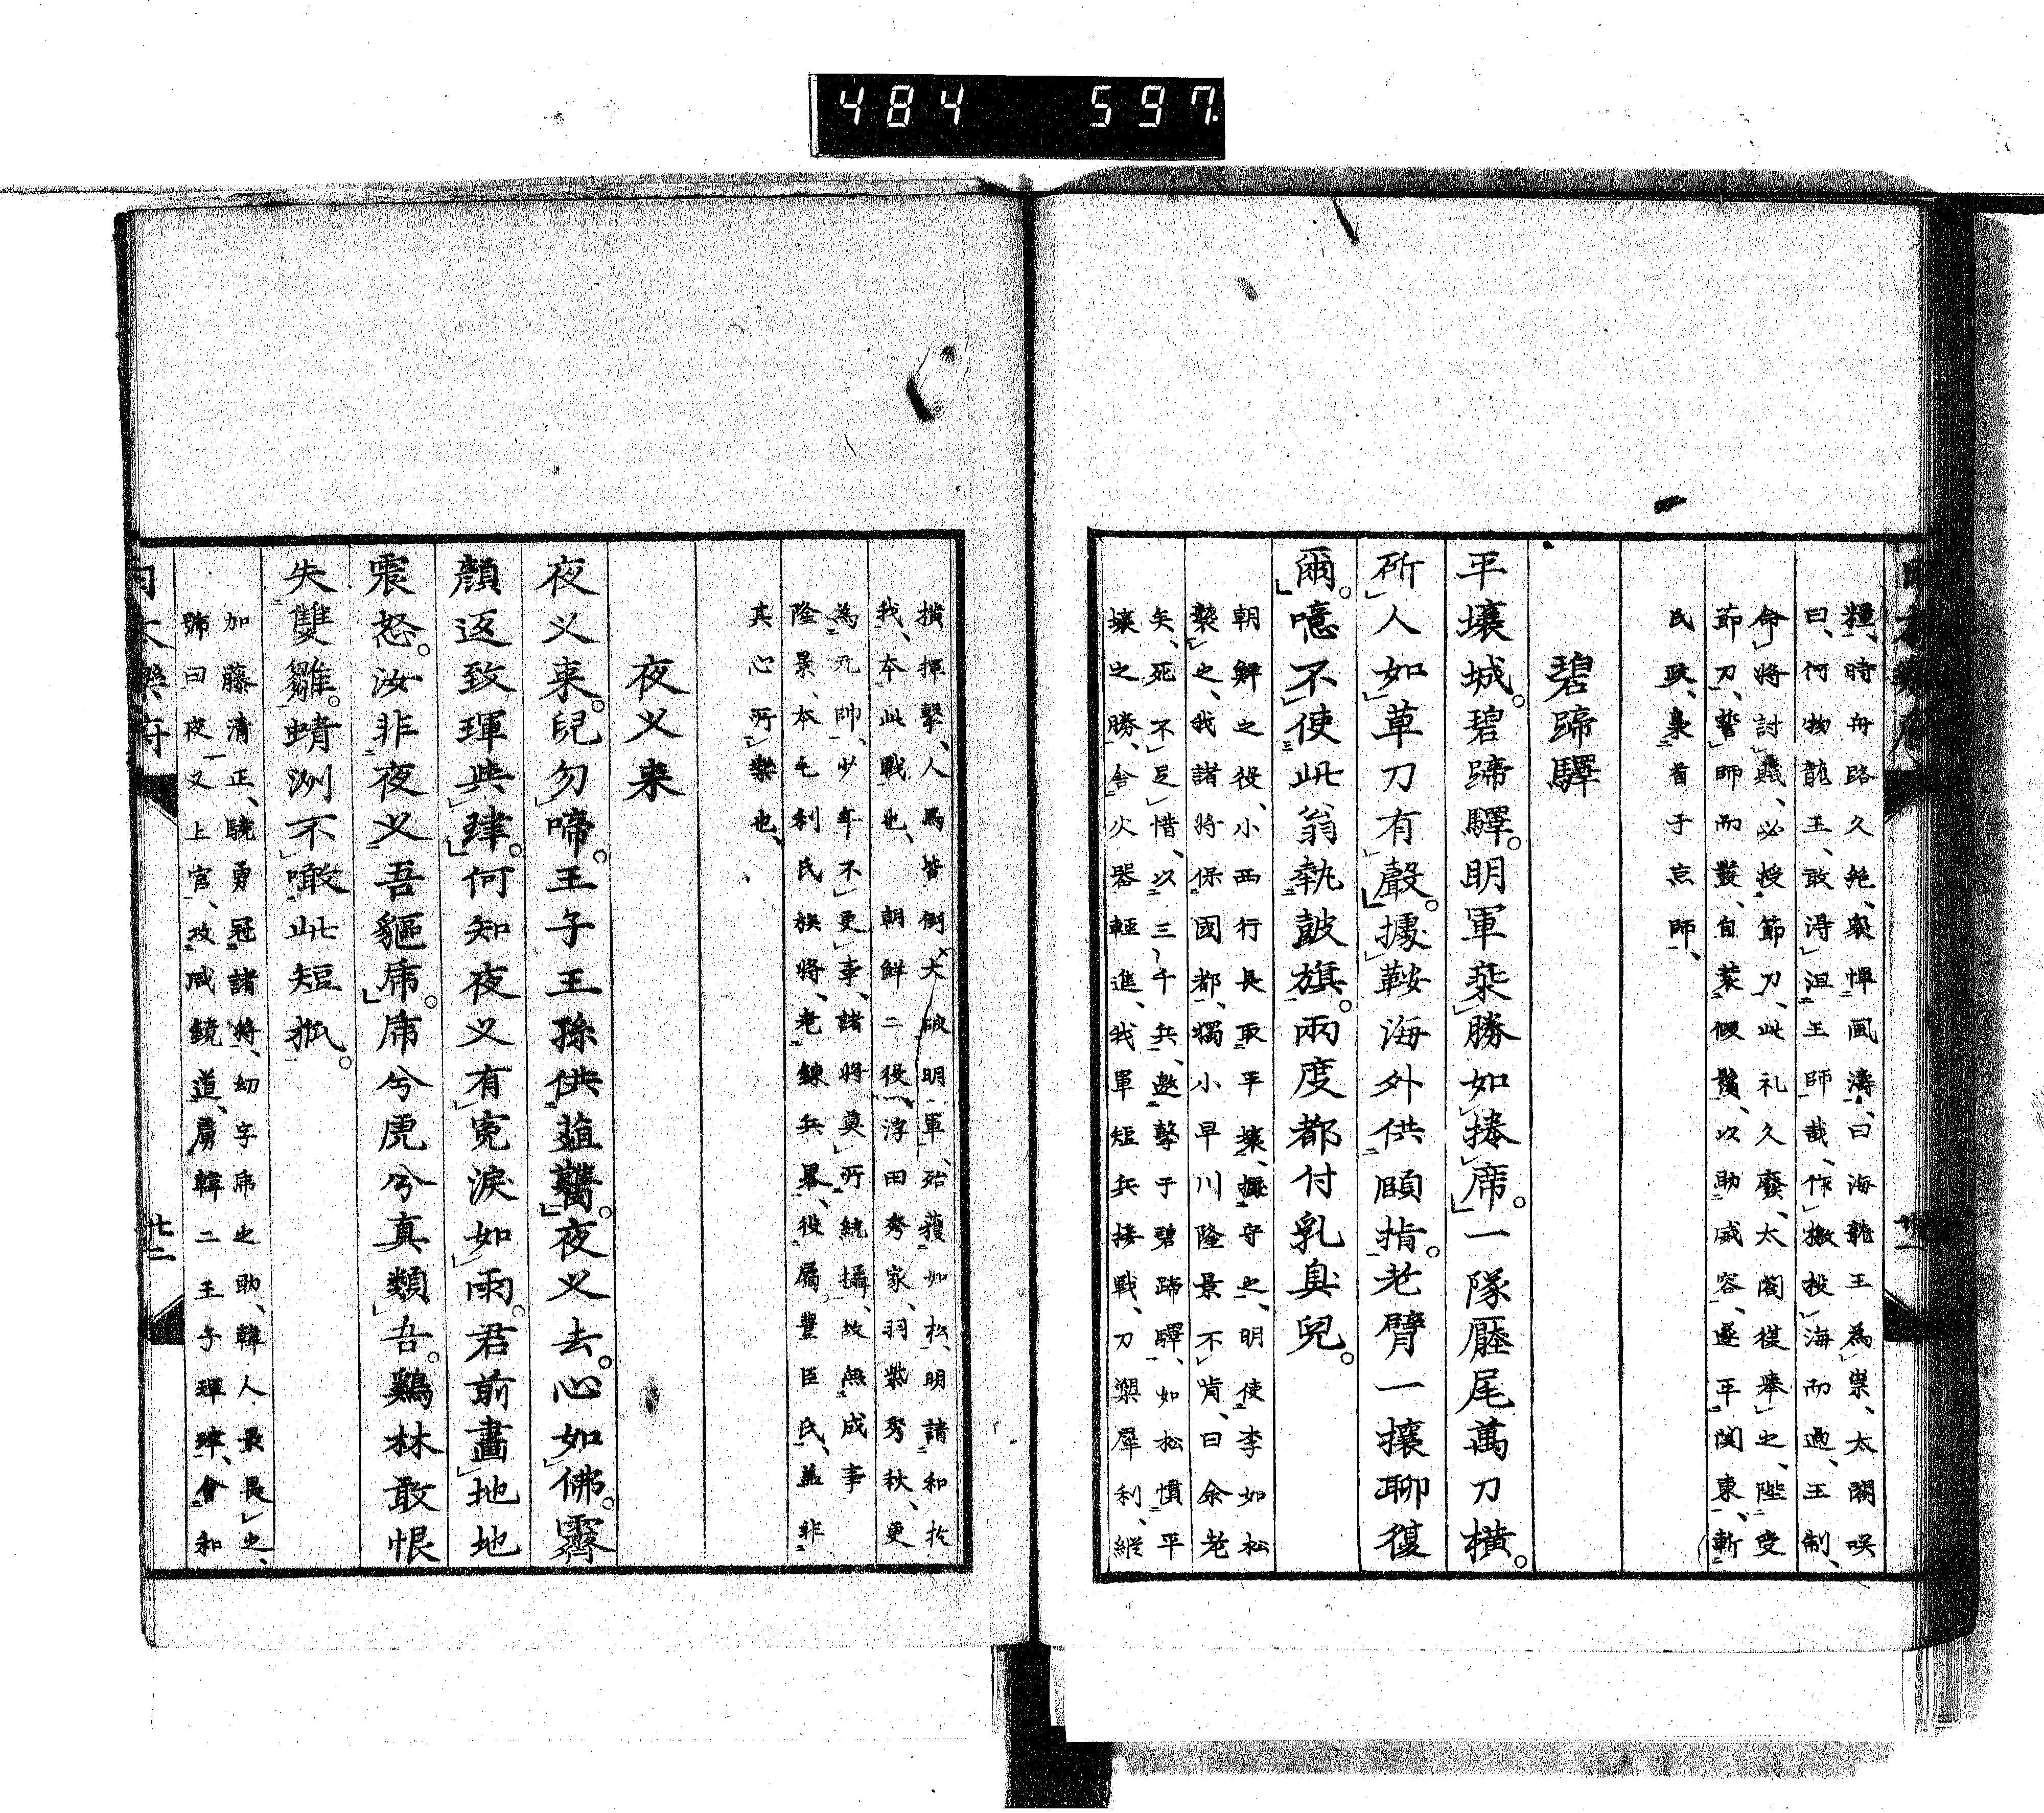 484 597.
糧、時舟路久絶、衆憚風濤、曰海龍王為祟、太閤咲
曰、何物龍王、敢淂沮王師哉、作檄投海而過、王制、
命將討賊、必授節刀、此礼久廢、太閤復舉之、陛受
節刀、誓師而發、自装假鬚、以助威容、遂平関東、斬
氏政、梟首于京師、
碧蹄驛
平壤城。碧蹄驛。明軍乘勝如捲席。一隊壓尾萬刀横。
斫人如草刀有聲。據鞍海外供頤指。老臂一攘聊復
爾。噫不使此翁執鼓旗。兩度都付乳臭兒。
朝鮮之役、小西行長取平壤、據守之、明使李如松
襲之、我諸將保國都、獨小早川隆景不肯、曰余老
矣、死不足惜、以三千兵、邀擊于碧蹄驛、如松慣平
壤之勝、舍火器輕進、我軍短兵接戰、刀槊犀利、縱
横揮擊、人馬皆倒、大破明軍、殆獲如松、明請和於
我、本此戰也、朝鮮二役、浮田秀家、羽柴秀秋、更
為元帥、少年不更事、諸將莫所統攝、故無成事
隆景、本毛利氏族將、老錬兵畧、役屬豐臣氏、益非
其心所樂也、
夜叉来
夜叉来。兒勿啼。王子王孫供葅虀。夜叉去。心如佛。霽
顔返致琿與𤥽。何知夜叉有寃淚如雨。君前畫地地
震怒。汝非夜叉吾貙虎。虎兮虎兮真類吾。鷄林敢恨
失雙雛。蜻洲不噉此短狐。
加藤清正、驍勇冠諸將、幼字虎之助、韓人最畏之、
號曰夜叉上官、攻咸鏡道、虜韓二王子琿𤥽、會和
日本樂府
廿二